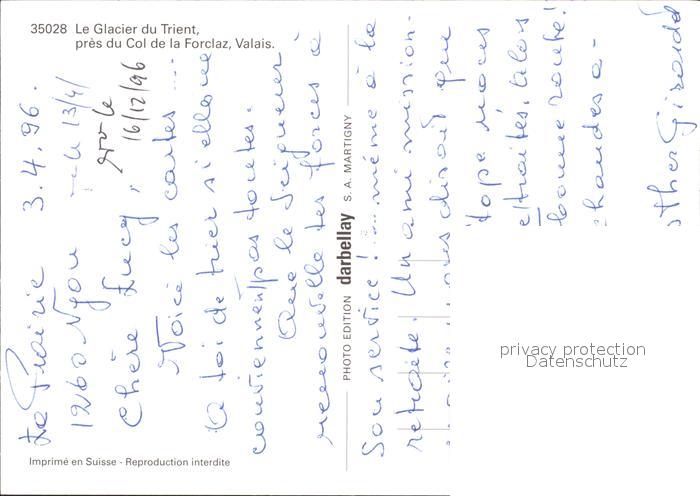 35028 Le Glacier du Trient,
près du Col de la Forclaz, Valais.
La Prairie 3.4.96.
1260 Nyon le 13/4/
Chère Lucy, 16/12/96
Voici les cartes ...
A toi de trier si elles ne
conviennent pas toutes.
Que le Seigneur
renouvelle tes forces à
Son service! ... même à la
retraite. Un ami mission-
disait que
traités. Alors
bonne route!
PHOTO EDITION darbellay S.A. MARTIGNY
Imprimé en Suisse - Reproduction interdite
privacy protection
Datenschutz